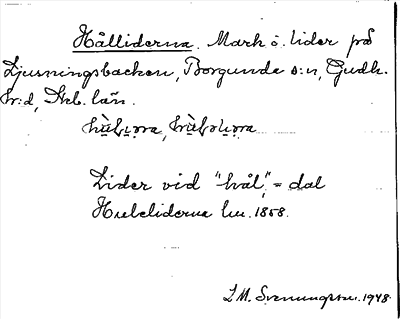 Hålliderna. Mark o. lider på
Ljusningsbacken, Borgunda s:n, Gudh.
hr:d, Skb. län.
Lider vid "hål", = dal
Huleliderna lm. 1858.
L M. Svenungsson. 1948